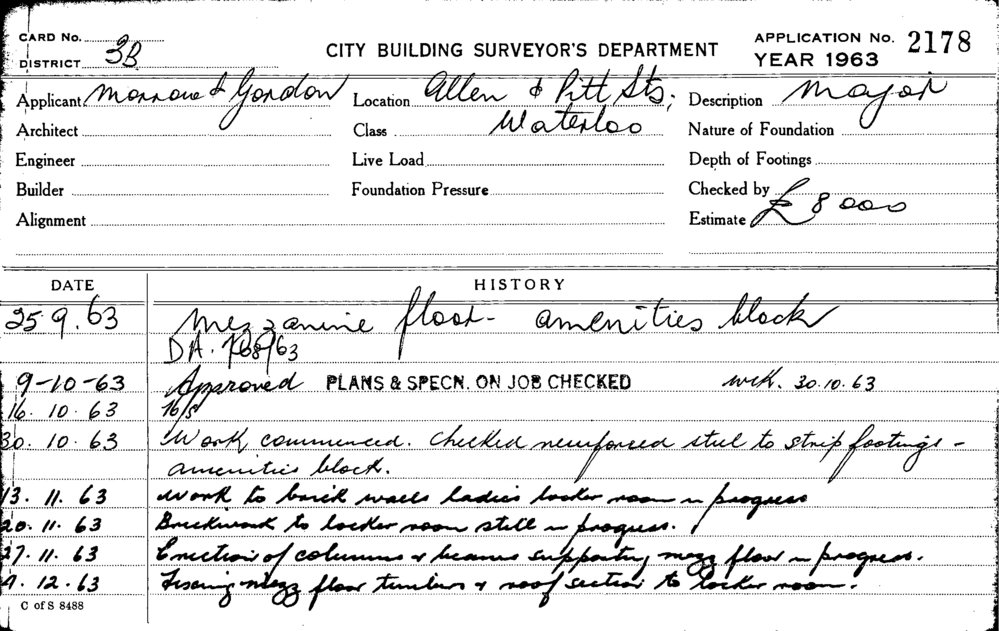 CARD No.
DISTRICT 3B
CITY BUILDING SURVEYOR'S DEPARTMENT
APPLICATION No. 2178
YEAR 1963
Applicant Morrow & Gordon
Location Allen & Pitt Sts;
Description Major
Architect
Class Waterloo
Nature of Foundation
Engineer
Live Load
Depth of Footings
Builder
Foundation Pressure
Checked by
Alignment
Estimate £8000
DATE HISTORY
25.9.63 Mezzanine floor - amenities block
DA. /63
9-10-63 Approved PLANS & SPECN. ON JOB CHECKED 30.10.63
16.10.63 16/s
30.10.63 Work commenced. Checked reinforced steel to strip footings -
amenities block.
13.11.63 Work to brick walls ladies locker room in progress
20.11.63 Brickwork to locker room still in progress.
27.11.63 Erection of columns & beams supporting mezz floor in progress.
12.63 Fixing mezz floor timbers & roof section to locker room.
C of S 8488